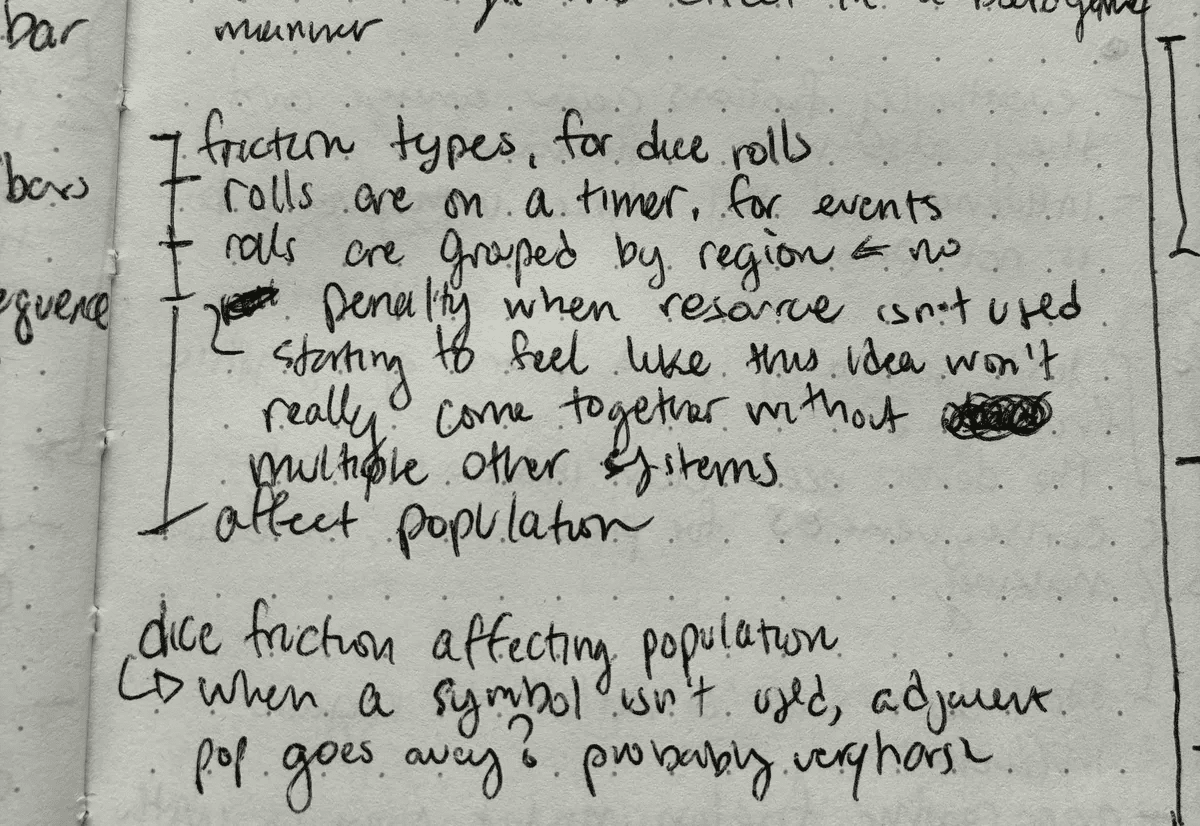 bar
manner
friction types, for dice rolls
bars
rolls are on a timer, for events
rolls are grouped by region ← no
penalty when resource isn't used
starting to feel like this idea won't
really come together without
multiple other systems
affect population
dice friction affecting population
↳ when a symbol isn't used, adjacent
pop goes away? probably very harsh